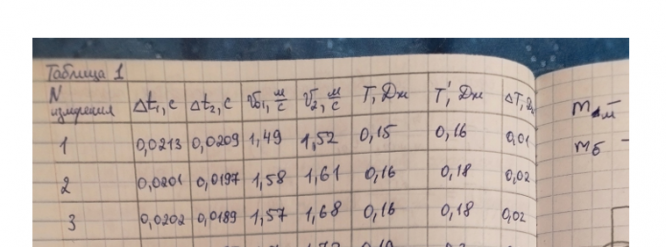 Таблица 1
N измерения Δt₁, с Δt₂, с υ₀₁, м/с υ₂, м/с T, Дж T', Дж ΔT, Дж
1 0,0213 0,0209 1,49 1,52 0,15 0,16 0,01
2 0,0201 0,0197 1,58 1,61 0,16 0,18 0,02
3 0,0202 0,0189 1,57 1,68 0,16 0,18 0,02
mб